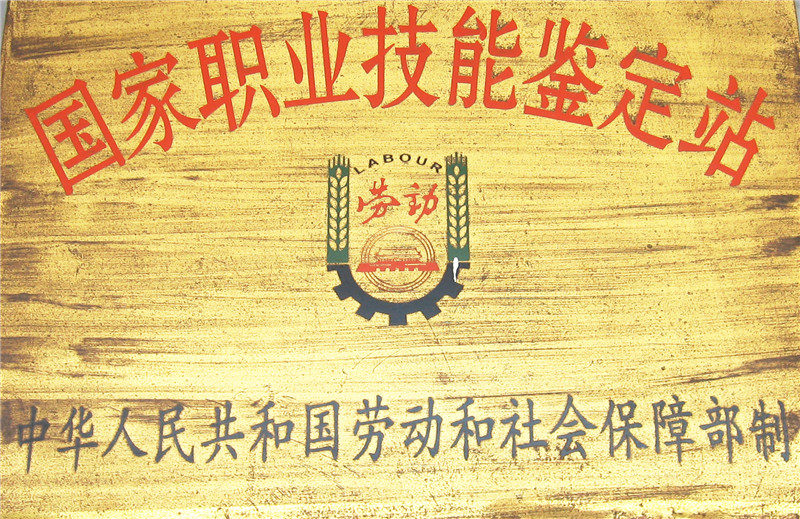 国家职业技能鉴定站
LABOUR
劳动
中华人民共和国劳动和社会保障部制